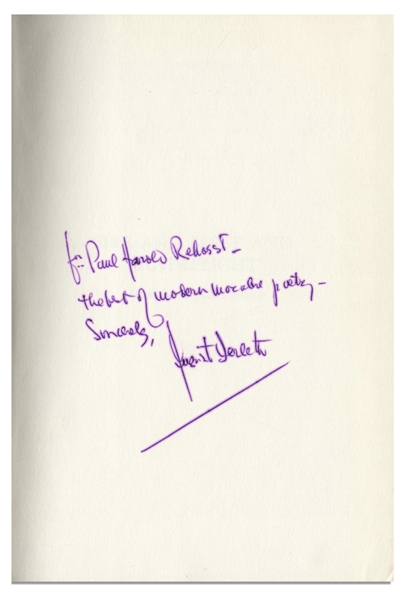 for Paul Harold Rehosst –
the best of modern macabre poetry –
Sincerely,
August Derleth